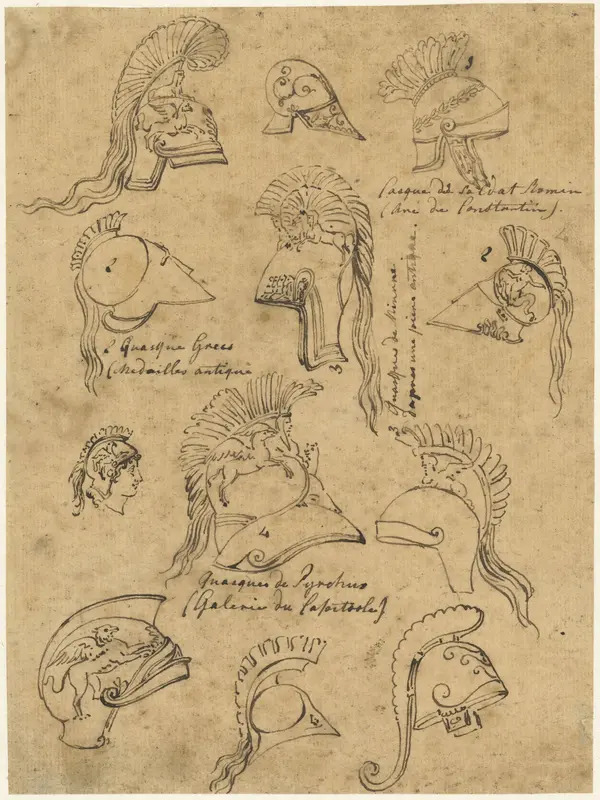 3
Casque de Soldat Romin
(Arc de Constantin).
2
2
2 Quasque Grecs
(Medailles antique
3
3 Quasques de
3 Dapres une piere antique.
4
Quasques de Pyrohus
(Galerie du Capitole)
4